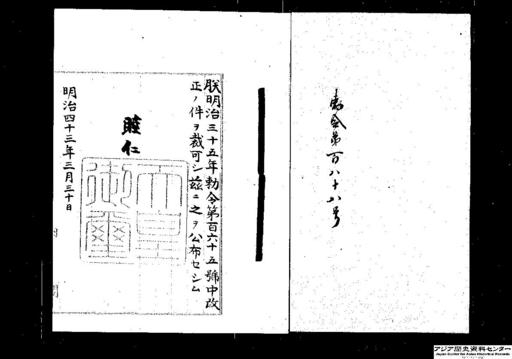 勅令第百八十八号
朕明治三十五年勅令第百六十五號中改
正ノ件ヲ裁可シ茲ニ之ヲ公布セシム
睦仁
天皇
御璽
明治四十三年三月三十日
アジア歴史資料センター
Japan Center for Asian Historical Records